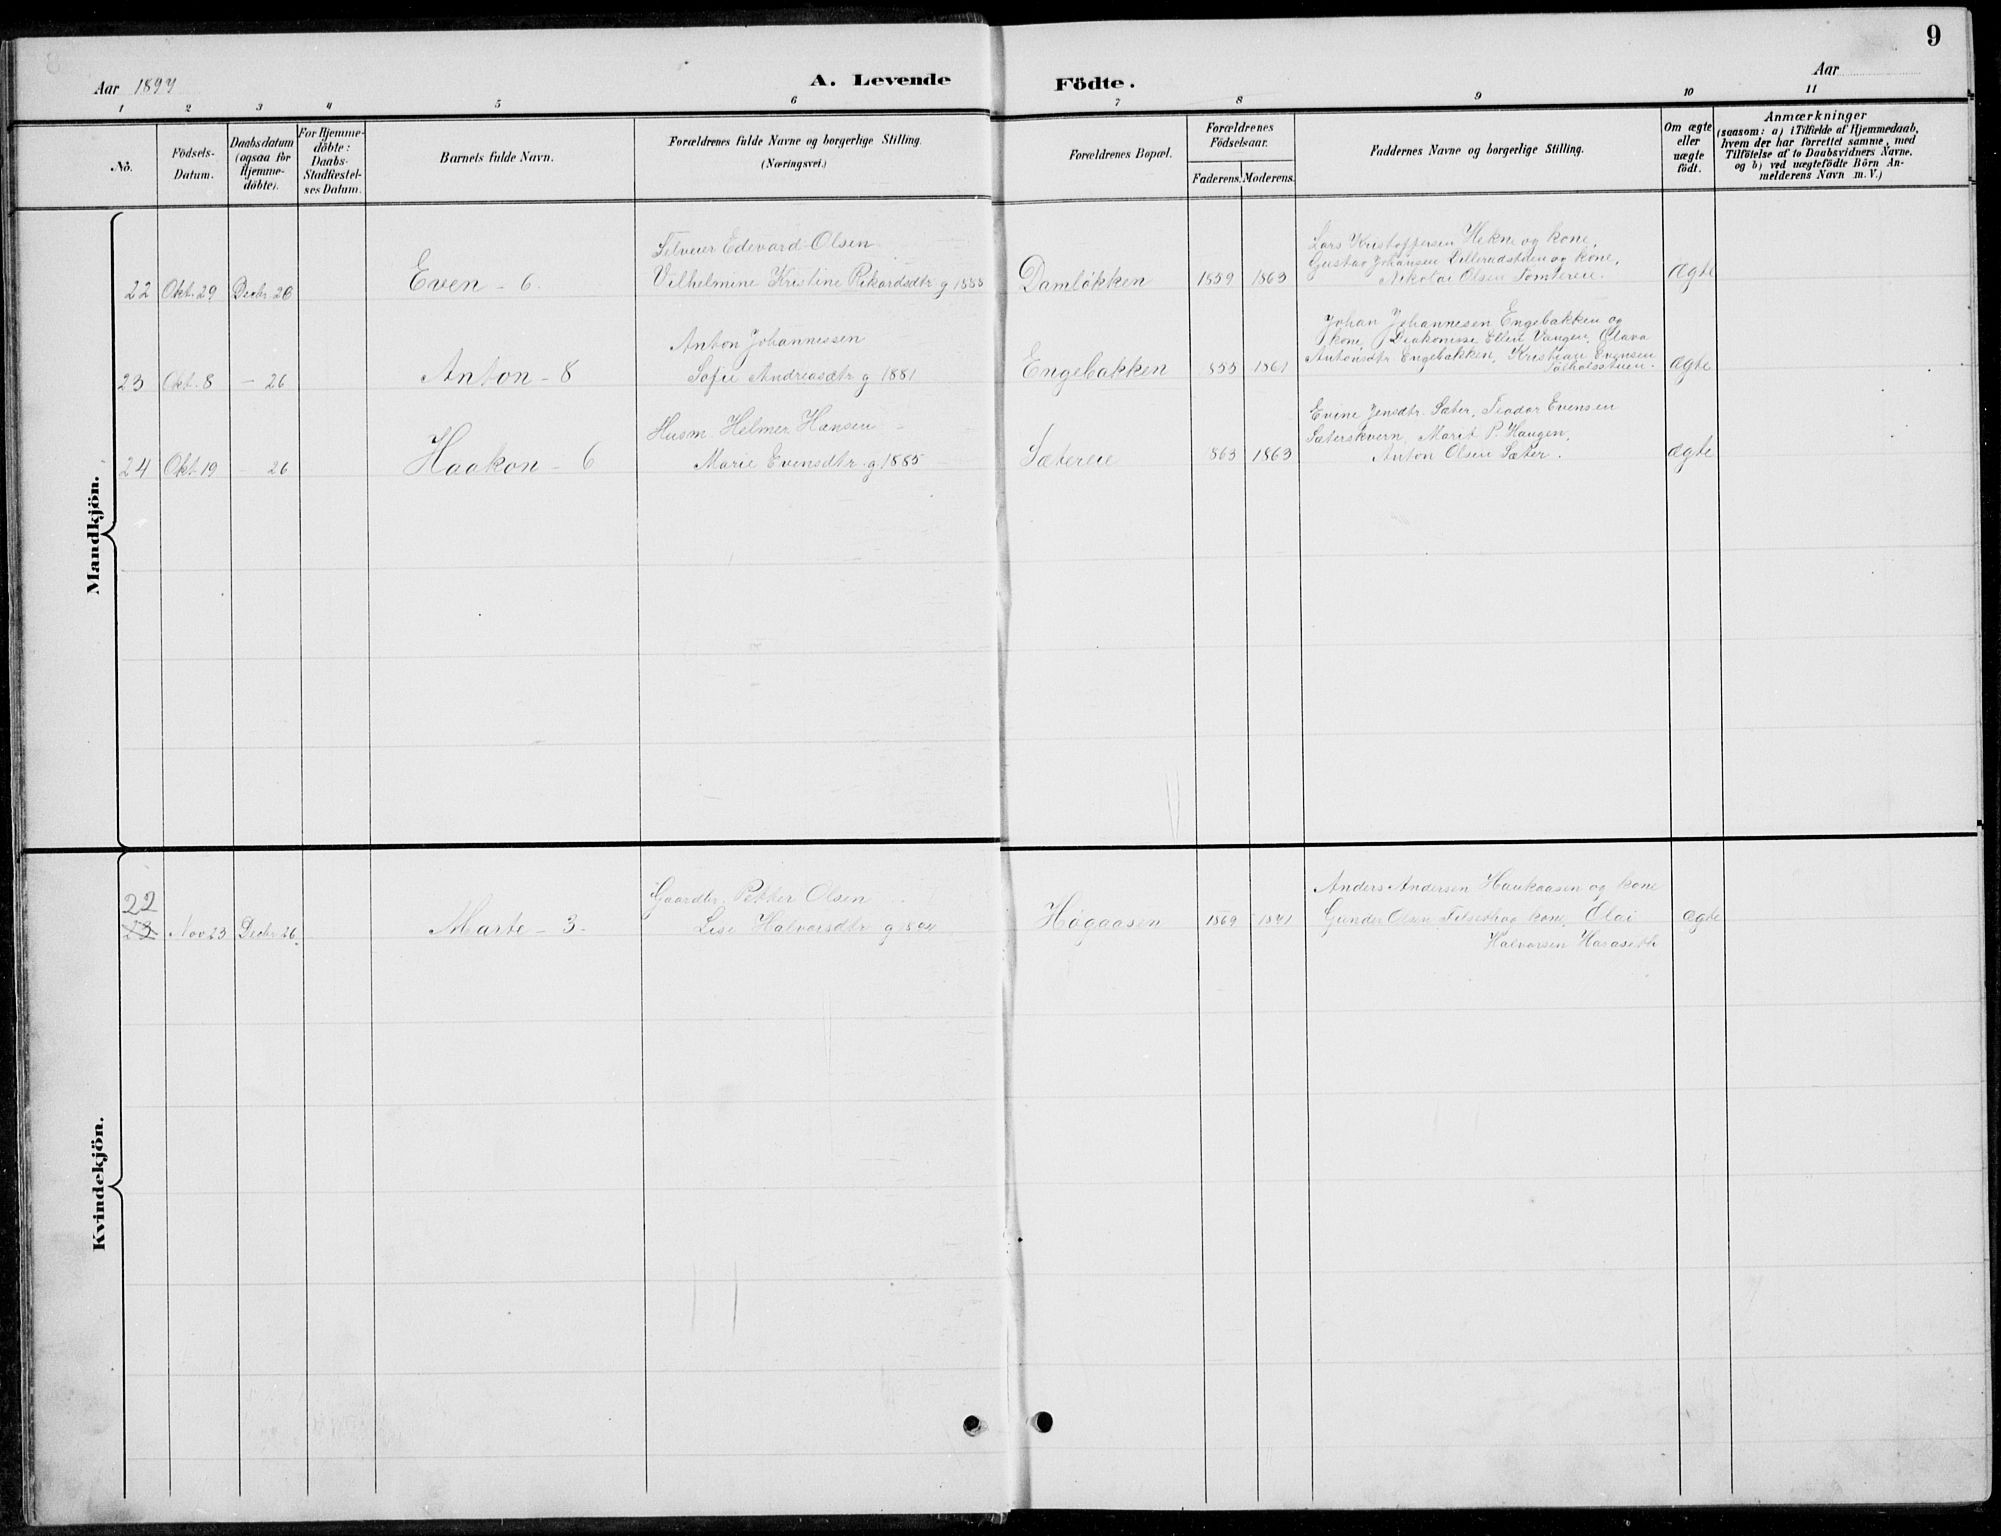 9
Aar 1897
A. Levende Födte.
Aar
1 2 3 4 5 6 7 8 9 10 11
No.
Födsels-
Datum.
Daabsdatum
(ogsaa for
Hjemme-
döbte).
For Hjemme-
döbte:
Daabs-
Stadfæstel-
ses Datum.
Barnets fulde Navn.
Forældrenes fulde Navne og borgerlige Stilling.
(Næringsvei.)
Forældrenes Bopæl.
Forældrenes
Födselsaar.
Faderens. Moderens.
Faddernes Navne og borgerlige Stilling.
Om ægte
eller
uægte
födt.
Anmærkninger
(saasom: a) i Tilfælde af Hjemmedaab,
hvem der har forrettet samme, med
Tilföielse af to Daabsvidners Navne.
og b) ved uægtefödte Börn An-
melderens Navn m. V.)
Mandkjön.
Selveier Edevard Olsen
Vilhelmine Kristine Rikardsdtr g 1885
Lars Kristoffersen Hekne og kone,
Gustav Johansen Lilleradstuen og kone,
Nikolai Olsen Tomtereie.
22 Okt. 29 Decbr 26 Even - 6. Damløkken 1859 1863 Ægte
Anton Johannessen
Sofie Andreasdtr g 1881
Johan Johannesen Engebakken og
kone, Diakonisse Ellen Vangen, Olava
Antonsdtr Engebakken, Kristian Evensen
23 Okt. 8 - 26 Anton - 8 Engebakken 855 1861 Ægte
Husm. Helmer Hansen
Marie Evensdtr g 1885
Evine Jensdtr. Sæter, Teodor Evensen
Sæterskvern, Marit P. Haugen,
Anton Olsen Sæter.
24 Okt. 19 - 26 Haakon - 6 Sætereie 863 1863 Ægte
Kvindekjön.
22
23 Nov 23 Decbr 26. Marte - 3. Høgaasen 1869 1871 Ægte
Gaardbr. Petter Olsen
Lise Halvorsdtr g 1894
Anders Andersen Haukaasen og kone
Gunder Olsen og kone, Olai
Halvorsen Haraseth